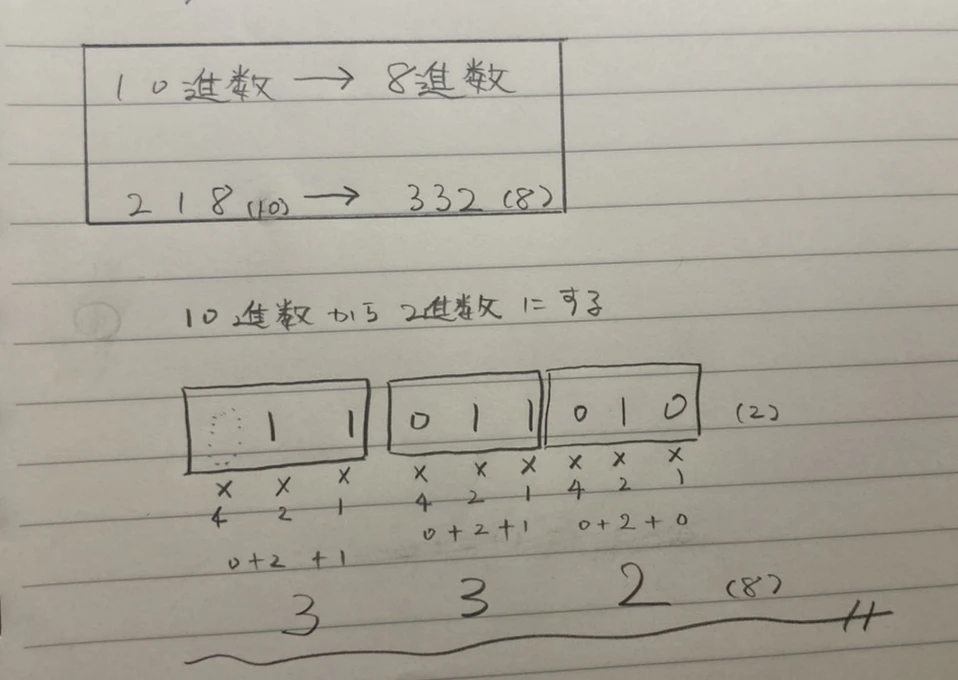 10進数 → 8進数
218(10) → 332(8)
10進数から2進数にする
0 1 1 0 1 1 0 1 0 (2)
× × × × × × × × ×
4 2 1 4 2 1 4 2 1
0+2+1 0+2+1 0+2+0
3 3 2 (8)